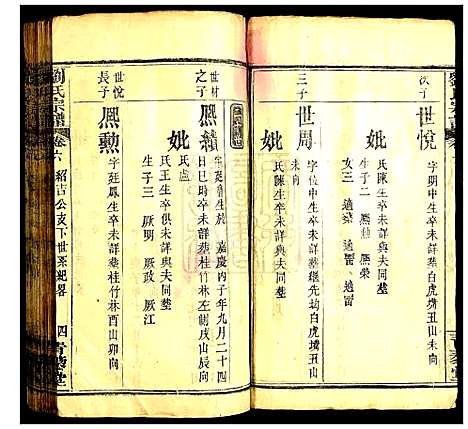 次子
世悅
字明中生卒未詳葬白虎擠丑山未向
妣
氏陳生卒未詳與夫同塋
生子二 熙
女三 適 適 適
三子
世周
字位中生卒未詳葬繼先
白虎擠丑山
未向
妣
氏陳生卒未詳與夫同塋
世材之子
熙績
字 魯生於 嘉慶丙子年九月二十四
日巳時卒未詳葬桂竹林左側戌山辰向
妣
氏盧
世悅長子
熙勲
字廷鳳生卒未詳葬桂竹林酉山卯向
妣
氏王生卒俱未詳與夫同塋
生子三 厥明 厥政 厥江
劉氏宗譜
卷六 紹吉公支下世系紀畧
四
青藜堂